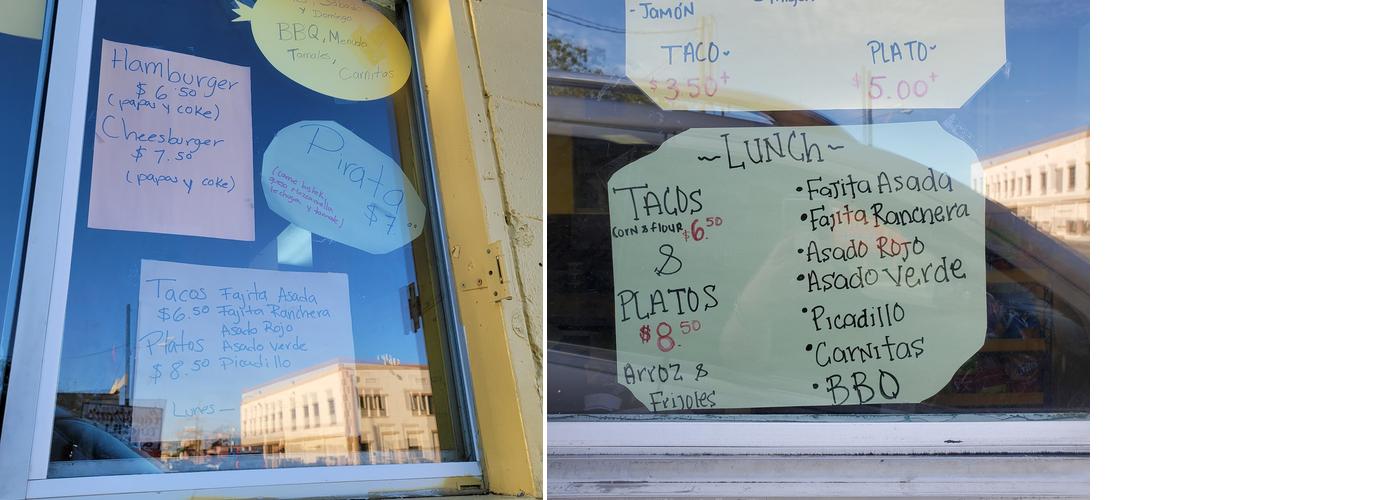 y Domingo
BBQ, Menudo
Tamales,
Carnitas
Hamburger
$6.50
(papas y coke)
Cheesburger
$7.50
(papas y coke)
Pirata
$7.00
Tacos Fajita Asada
$6.50 Fajita Ranchera
Asado Rojo
Platos Asado verde
$8.50 Picadillo
Lunes —
- Jamón
TACO
PLATO
$3.50+
$5.00+
~LUNCh~
TACOS
Corn & flour $6.50
&
PLATOS
$8.50
Arroz &
Frijoles
•Fajita Asada
•Fajita Ranchera
•Asado ROJO
•Asado verde
•Picadillo
•Carnitas
•BBQ